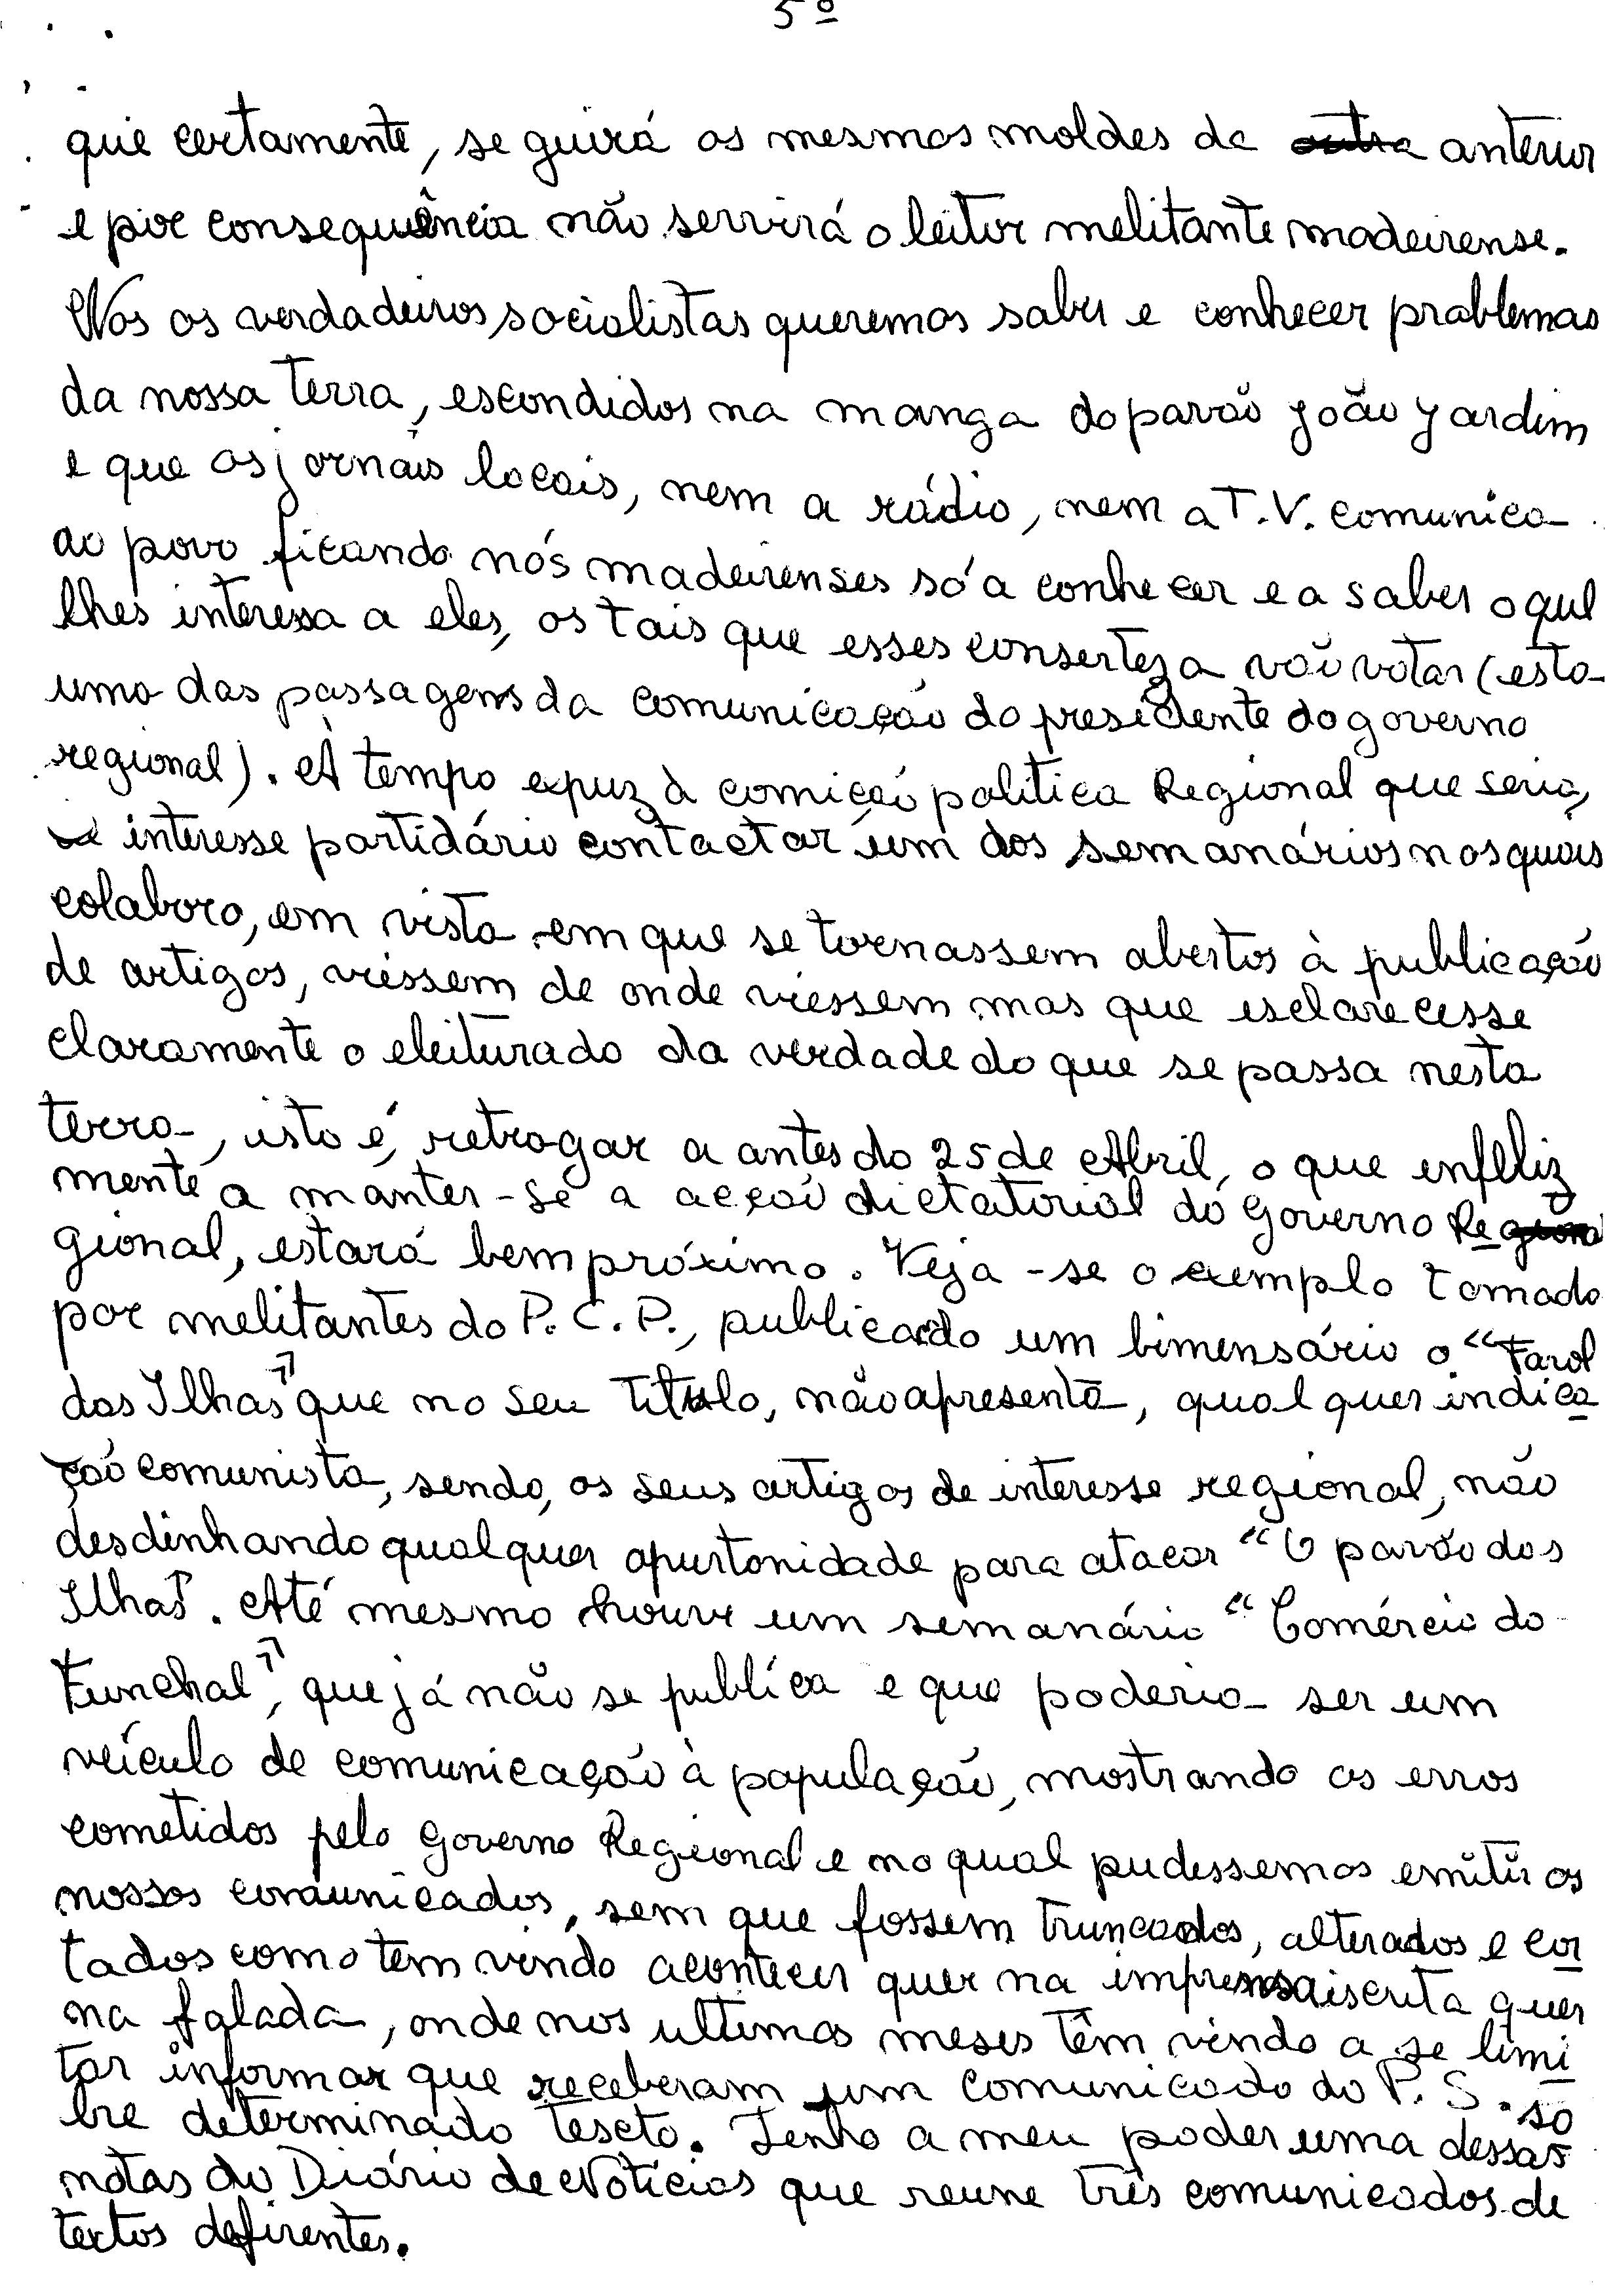 5º
que certamente, seguirá os mesmos moldes da outra anterior
e por consequência não servirá o leitor melitante madeirense.
Nos os verdadeiros socialistas queremos saber e conhecer problemas
da nossa terra, escondidos na manga do pavão João Jardim
e que os jornais locais, nem a rádio, nem a T.V. comunica
ao povo ficando nós madeirenses só a conhecer e a saber o que
lhes interessa a eles, os tais que esses conserteza vão votar (esta
uma das passagens da comunicação do presidente do governo
regional). A tempo expuz à comição politica Regional que seria,
interesse partidário contactar um dos semanários nos quais
colaboro, em vista em que se tornassem abertos à publicação
de artigos, viéssem de onde viessem mas que esclarecesse
claramente o eleiturado da verdade do que se passa nesta
terra, isto é, retrogar a antes do 25 de Abril, o que infeliz
mente a manter-se a acção dictatorial do Governo Re
gional, estará bem próximo. Veja-se o exemplo tomado
por melitantes do P.C.P., publicado um bimensário o "Farol
das Ilhas" que no seu titulo, não apresenta, qualquer indica
ção comunista, sendo, os seus artigos de interesse regional, não
desdinhando qualquer opurtonidade para atacar "O pavão das
Ilhas". Até mesmo houve um semanário "Comércio do
Funchal", que já não se publíca e que poderia ser um
veículo de comunicação à população, mostrando os erros
cometidos pelo Governo Regional e no qual pudessemos emitir os
nossos comunicados, sem que fossem truncados, alterados e cor
tados como tem vindo acontecer quer na imprensa iscrita quer
na falada, onde nos ultimos meses têm vindo a se limi
tar informar que receberam um comunicado do P.S. so
bre determinado texto. Tenho a meu poder uma dessas
notas do Diário de Notícias que reune três comunicados de
textos defirentes.